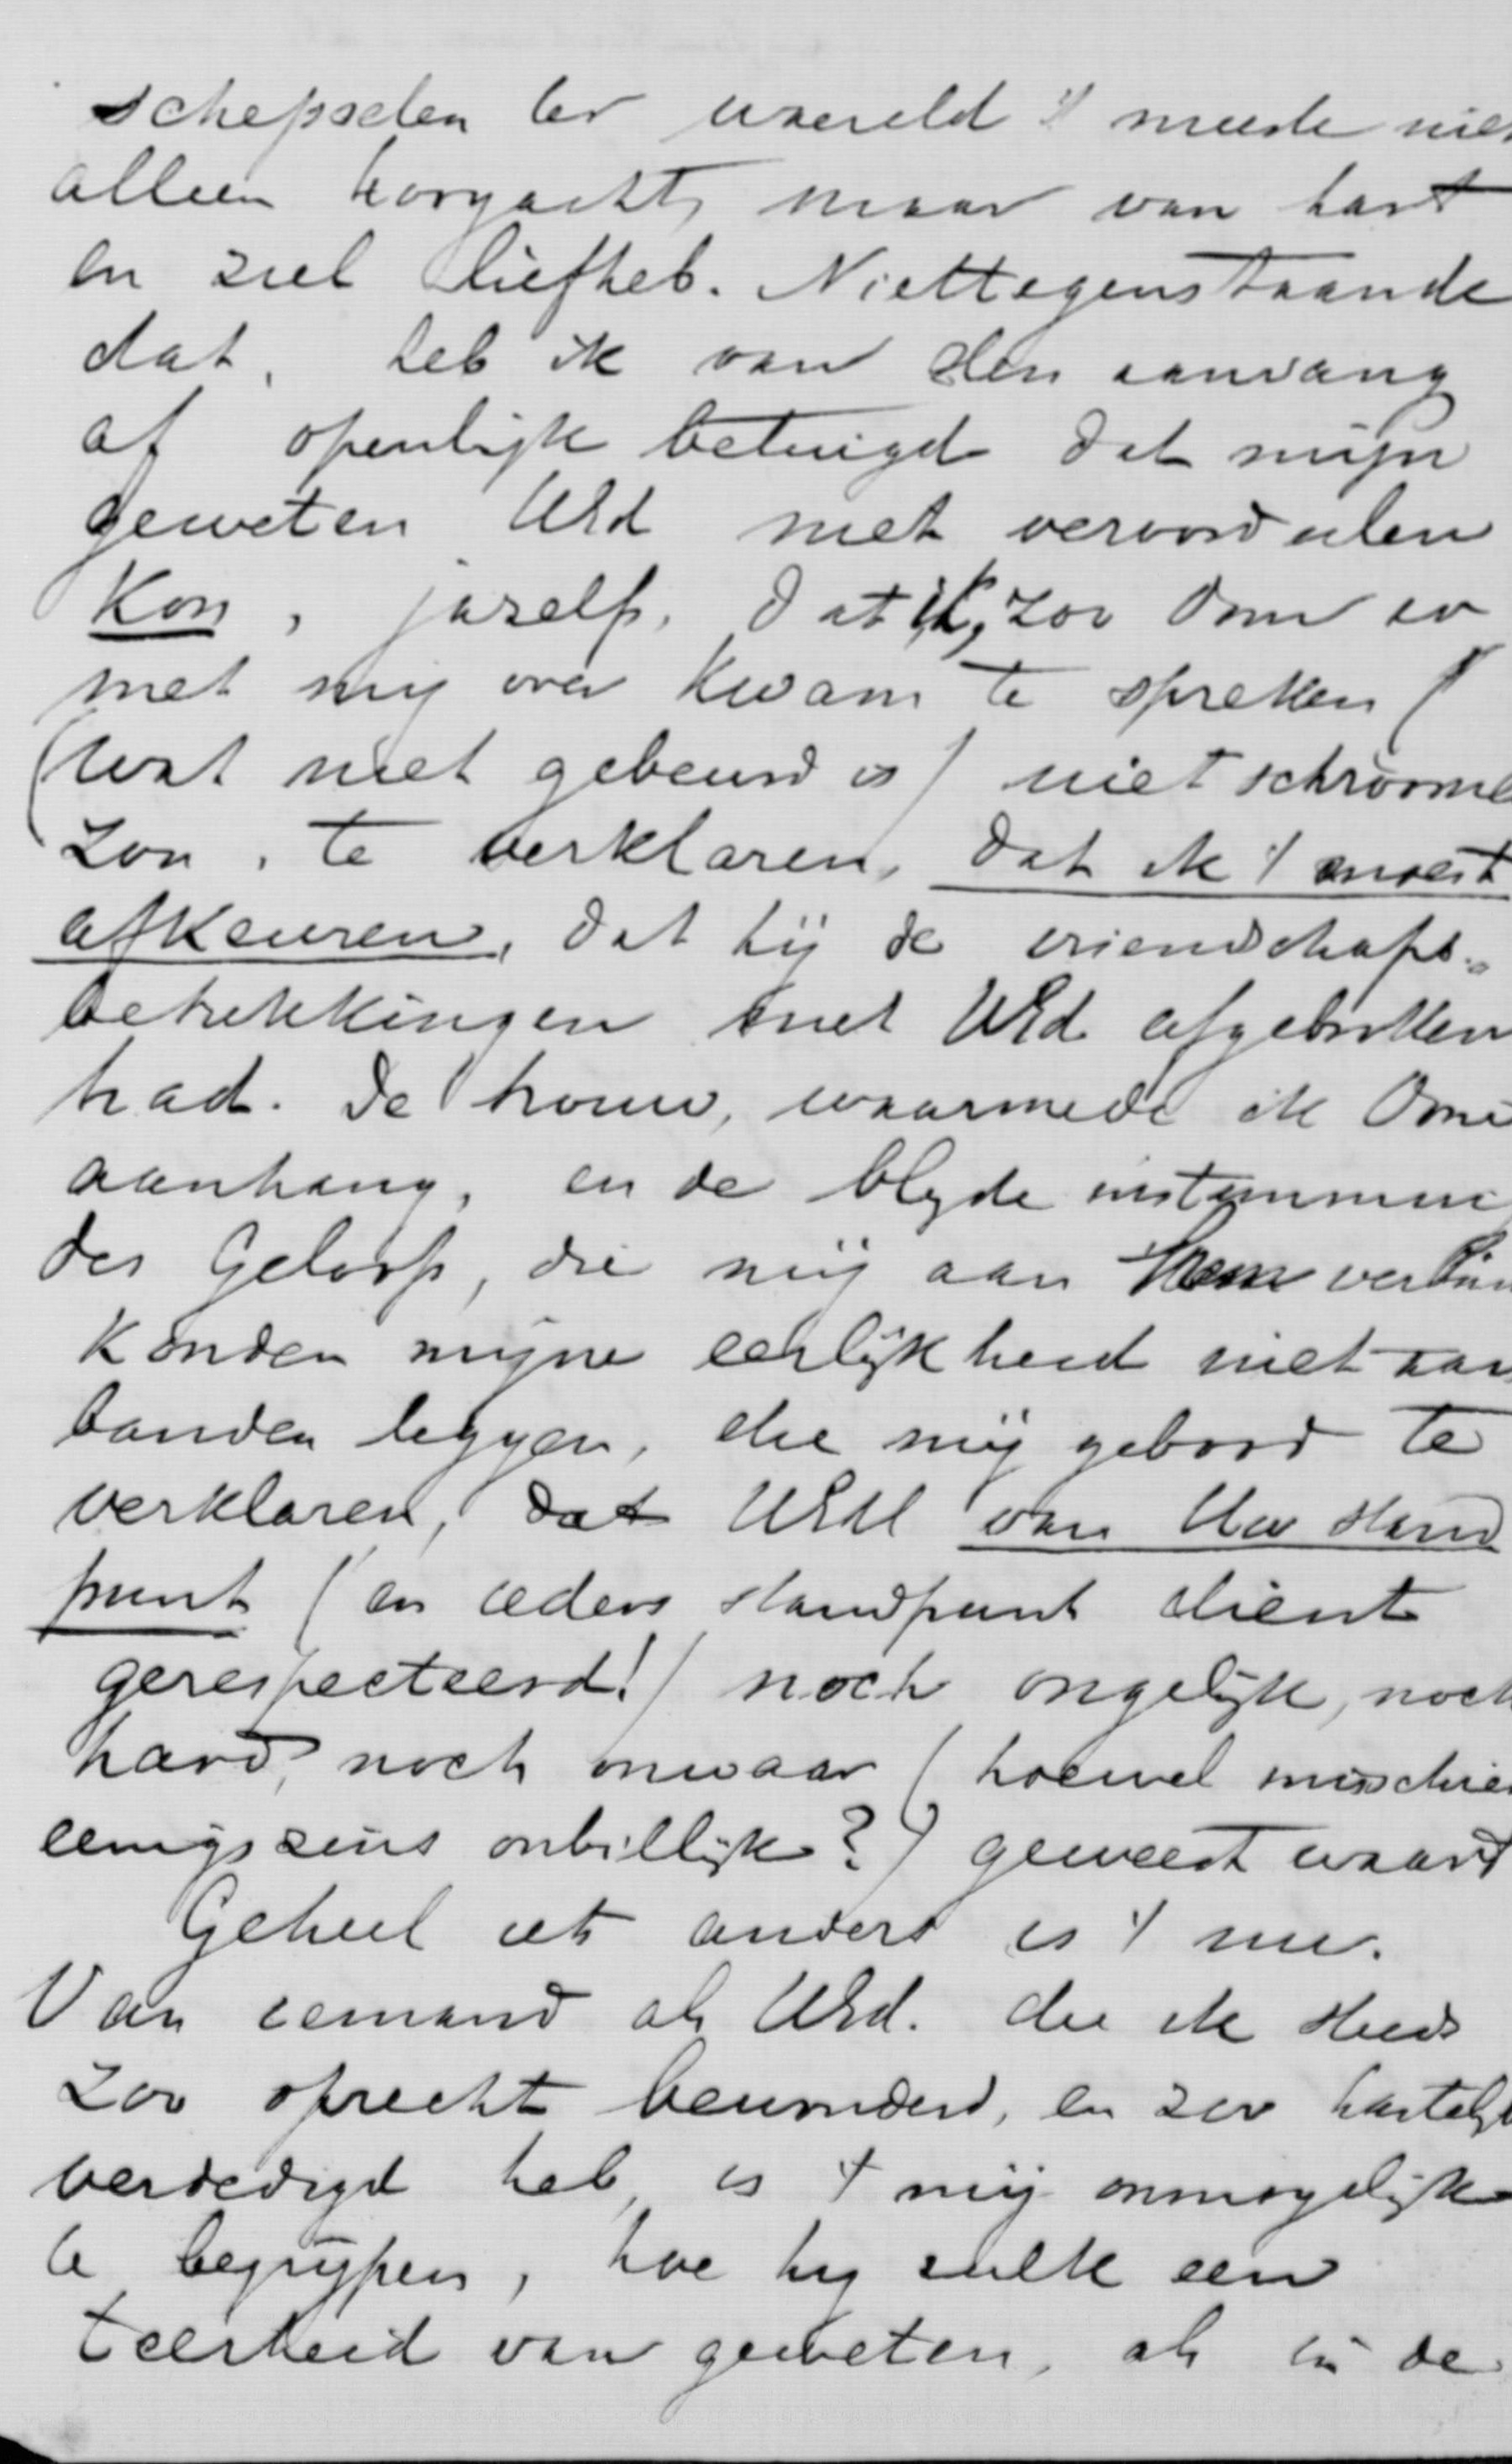 schepselen ter waereld 't meeste nie
alleen hoogacht, maar van hart
en ziel liefheb. Niettegenstaande
dat, heb ik van den aanvang
af openlijk betuigd dat mijn
geweten UEd niet veroordeelen
kon, jazelfs, dat ik, zoo Ome er
met mij over kwam te spreken
(wat niet gebeurd is) niet schroome
zou, te verklaren, dat ik 't moest
afkeuren, dat hij de vriendschaps-
betrekkingen met UEd afgebroken
had. De trouw, waarmede ik Ome
aanhang, en de blyde instemmin
des Geloofs, die mij aan Hem verbin
konden mijne eerlijkheid niet aan
banden leggen, die mij gebood te
verklaren, dat UEd van Uw stand
punt (en ieders standpunt dient
gerespecteerd!) noch ongelijk, noch
hard, noch onwaar (hoewel misschie
eenigszins onbillijk?) geweest waart
Geheel iets anders is 't nu.
Van iemand als UEd. die ik steeds
zoo oprecht bewonderd, en zoo hartelijk
verdedigd heb, is 't mij onmogelijk
te begrijpen, hoe hij zulk een
teerheid van geweten, als in de